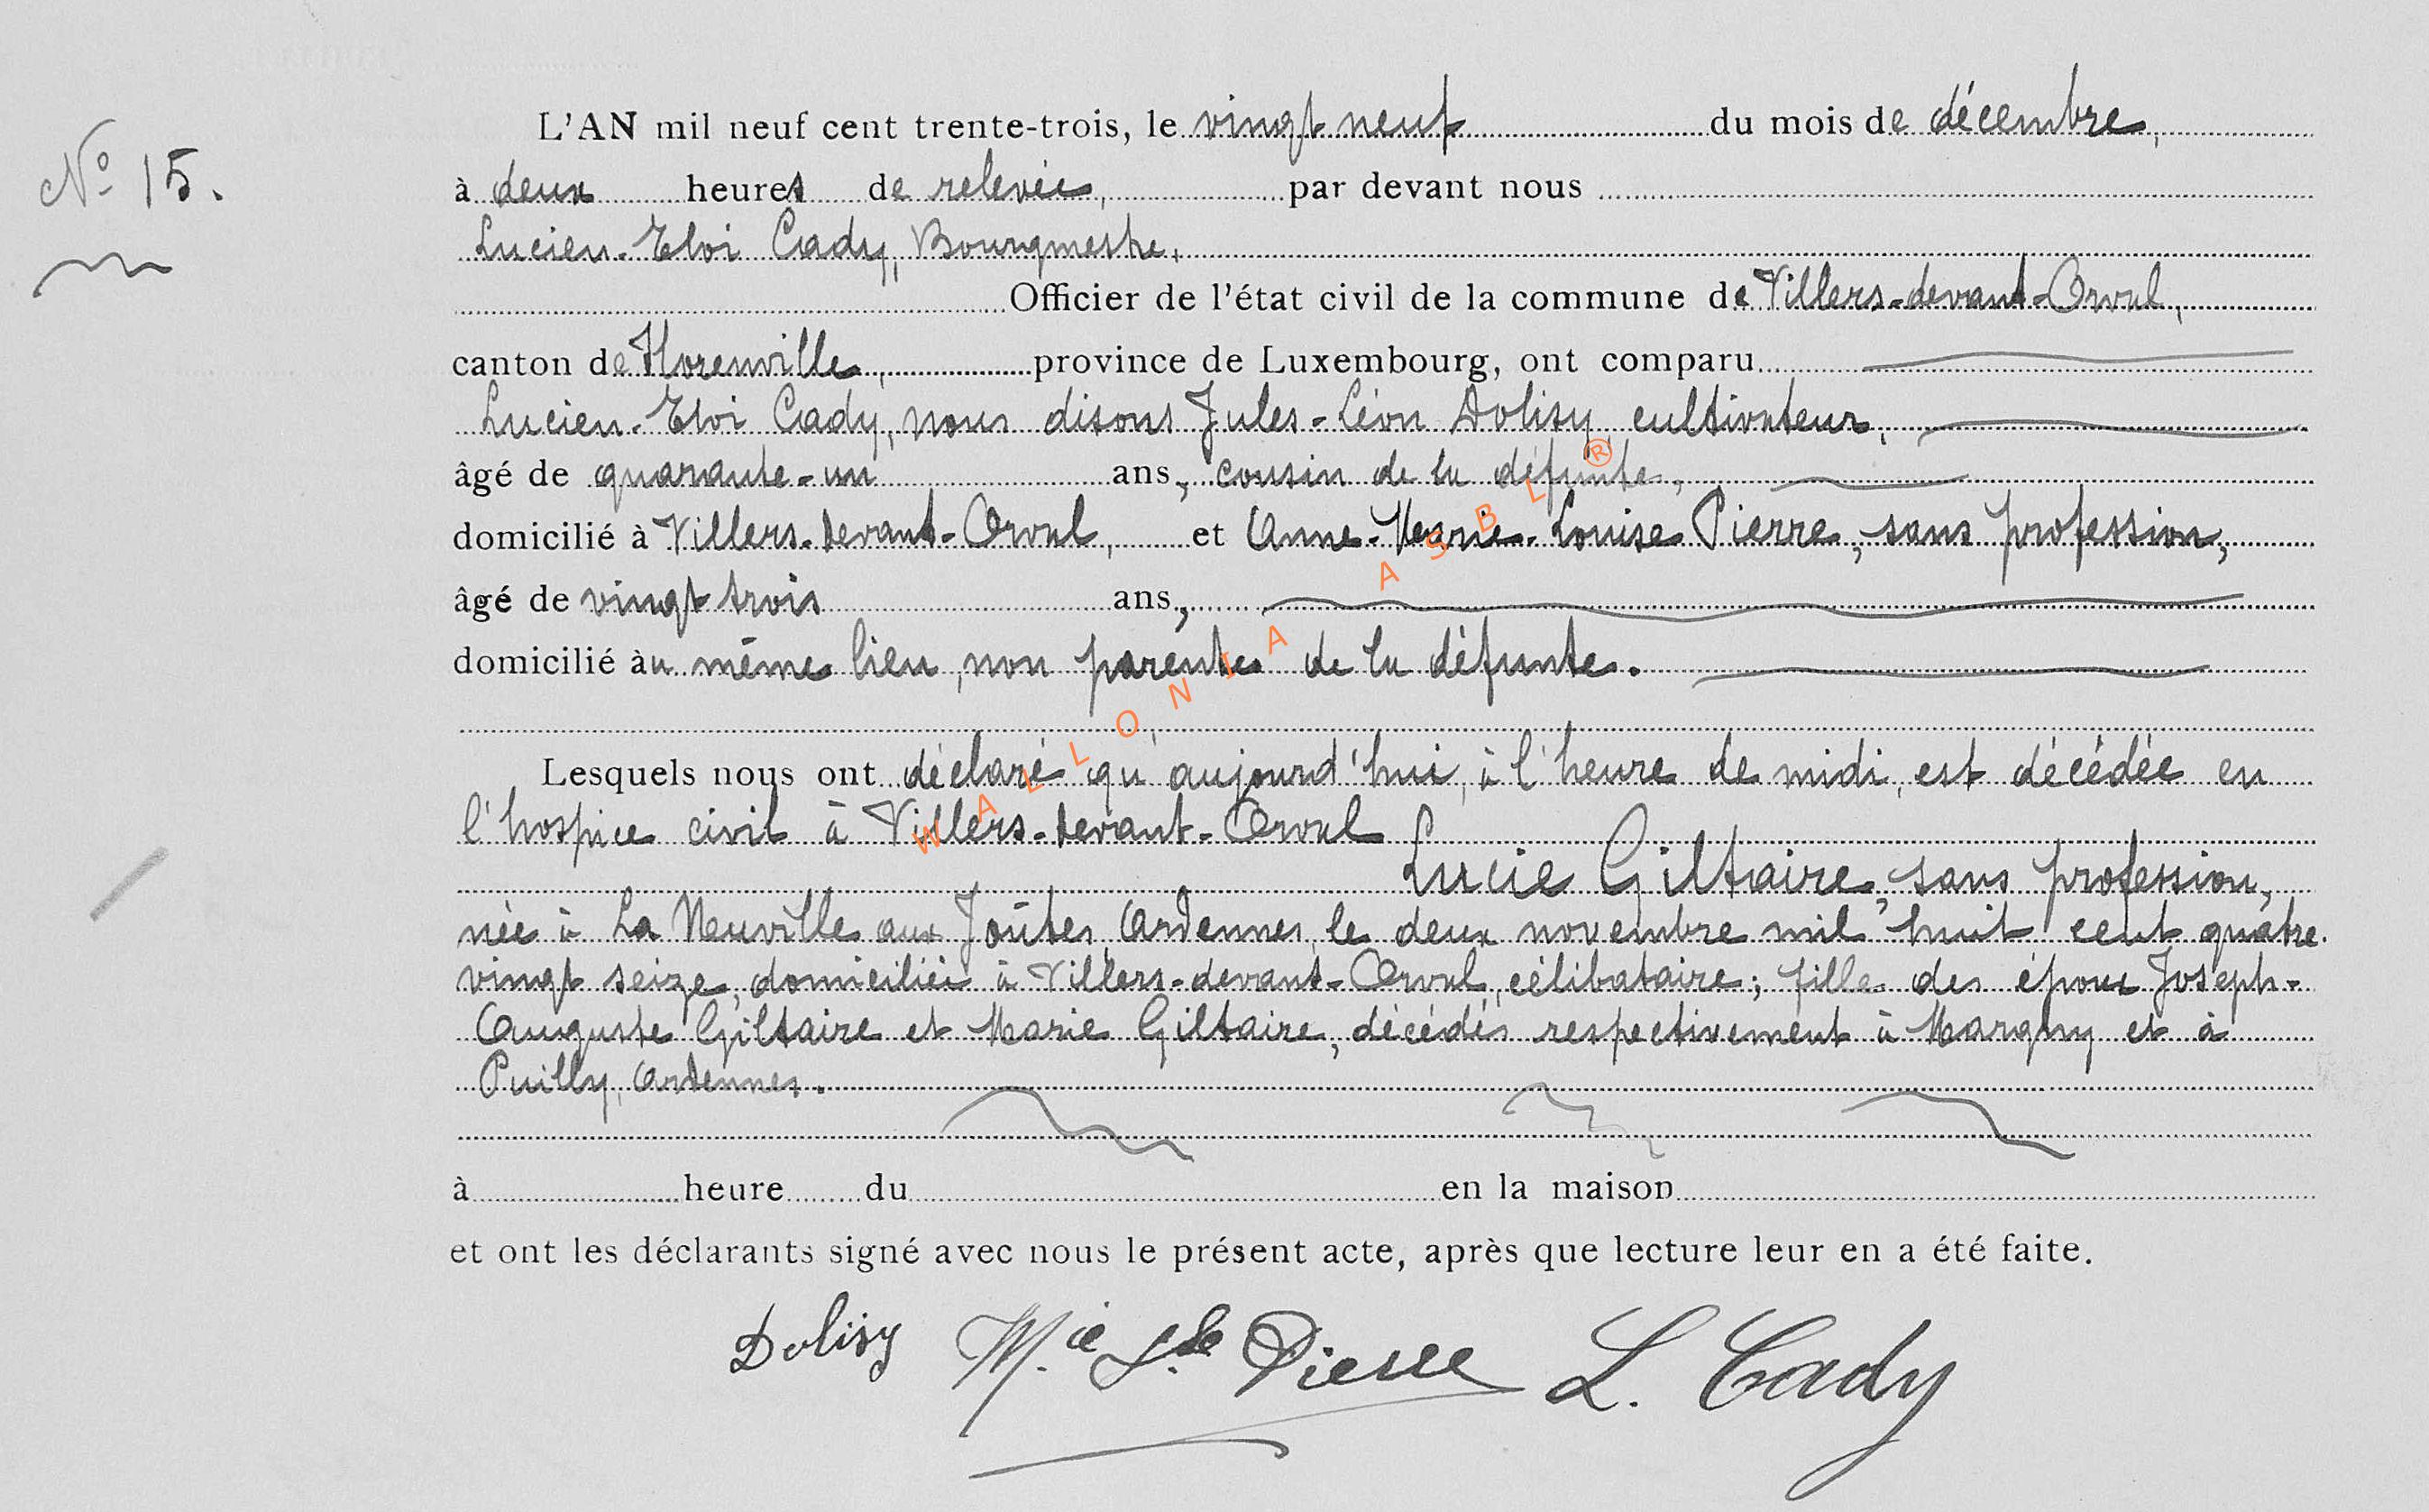 L'AN mil neuf cent trente-trois, le vingt neuf du mois de décembre,
N° 15.
à deux heures de relevée, par devant nous
Lucien-Eloi Cady, Bourgmestre,
Officier de l'état civil de la commune de Villers-devant-Orval,
canton de Florenville, province de Luxembourg, ont comparu
Lucien-Eloi Cady, nous disons Jules-Léon Dolisy cultivateur,
âgé de quarante-un ans, cousin de la défunte,
domicilié à Villers-devant-Orval, et Anne-Marie-Louise Pierre, sans profession,
âgé de vingt trois ans,
domicilié au même lieu, non parente de la défunte.
Lesquels nous ont déclaré qu'aujourd'hui, à l'heure de midi, est décédée en
l'hospice civil à Villers-devant-Orval
Lucie Giltaire, sans profession,
née à La Neuville aux Joûtes, Ardennes, le deux novembre mil huit cent quatre-
vingt seize, domiciliée à Villers-devant-Orval, célibataire; fille des époux Joseph-
Auguste Giltaire et Marie Giltaire, décédés respectivement à Margny et à
Puilly, Ardennes.
à heure du en la maison
et ont les déclarants signé avec nous le présent acte, après que lecture leur en a été faite.
Dolisy M.ie L.se Pierre L. Cady
WALLONIA ASBL ®